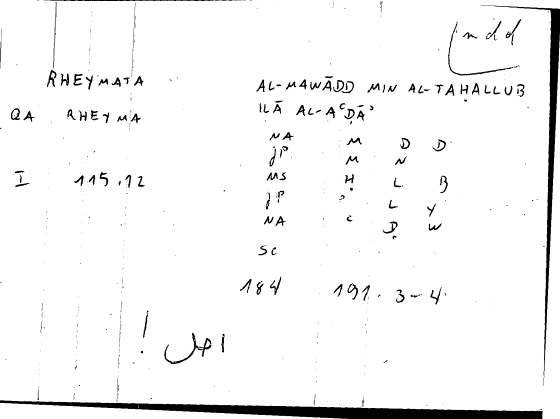 mdd
RHEYMATA AL-MAWĀDD MIN AL-TAḤALLUB
QA RHEYMA ILĀ AL-AᶜḌĀʾ
NA M D D
JP M N
I 115.12 MS Ḥ L B
JP ʾ L Y
NA ᶜ Ḍ W
SC
184 191.3-4
اصل !